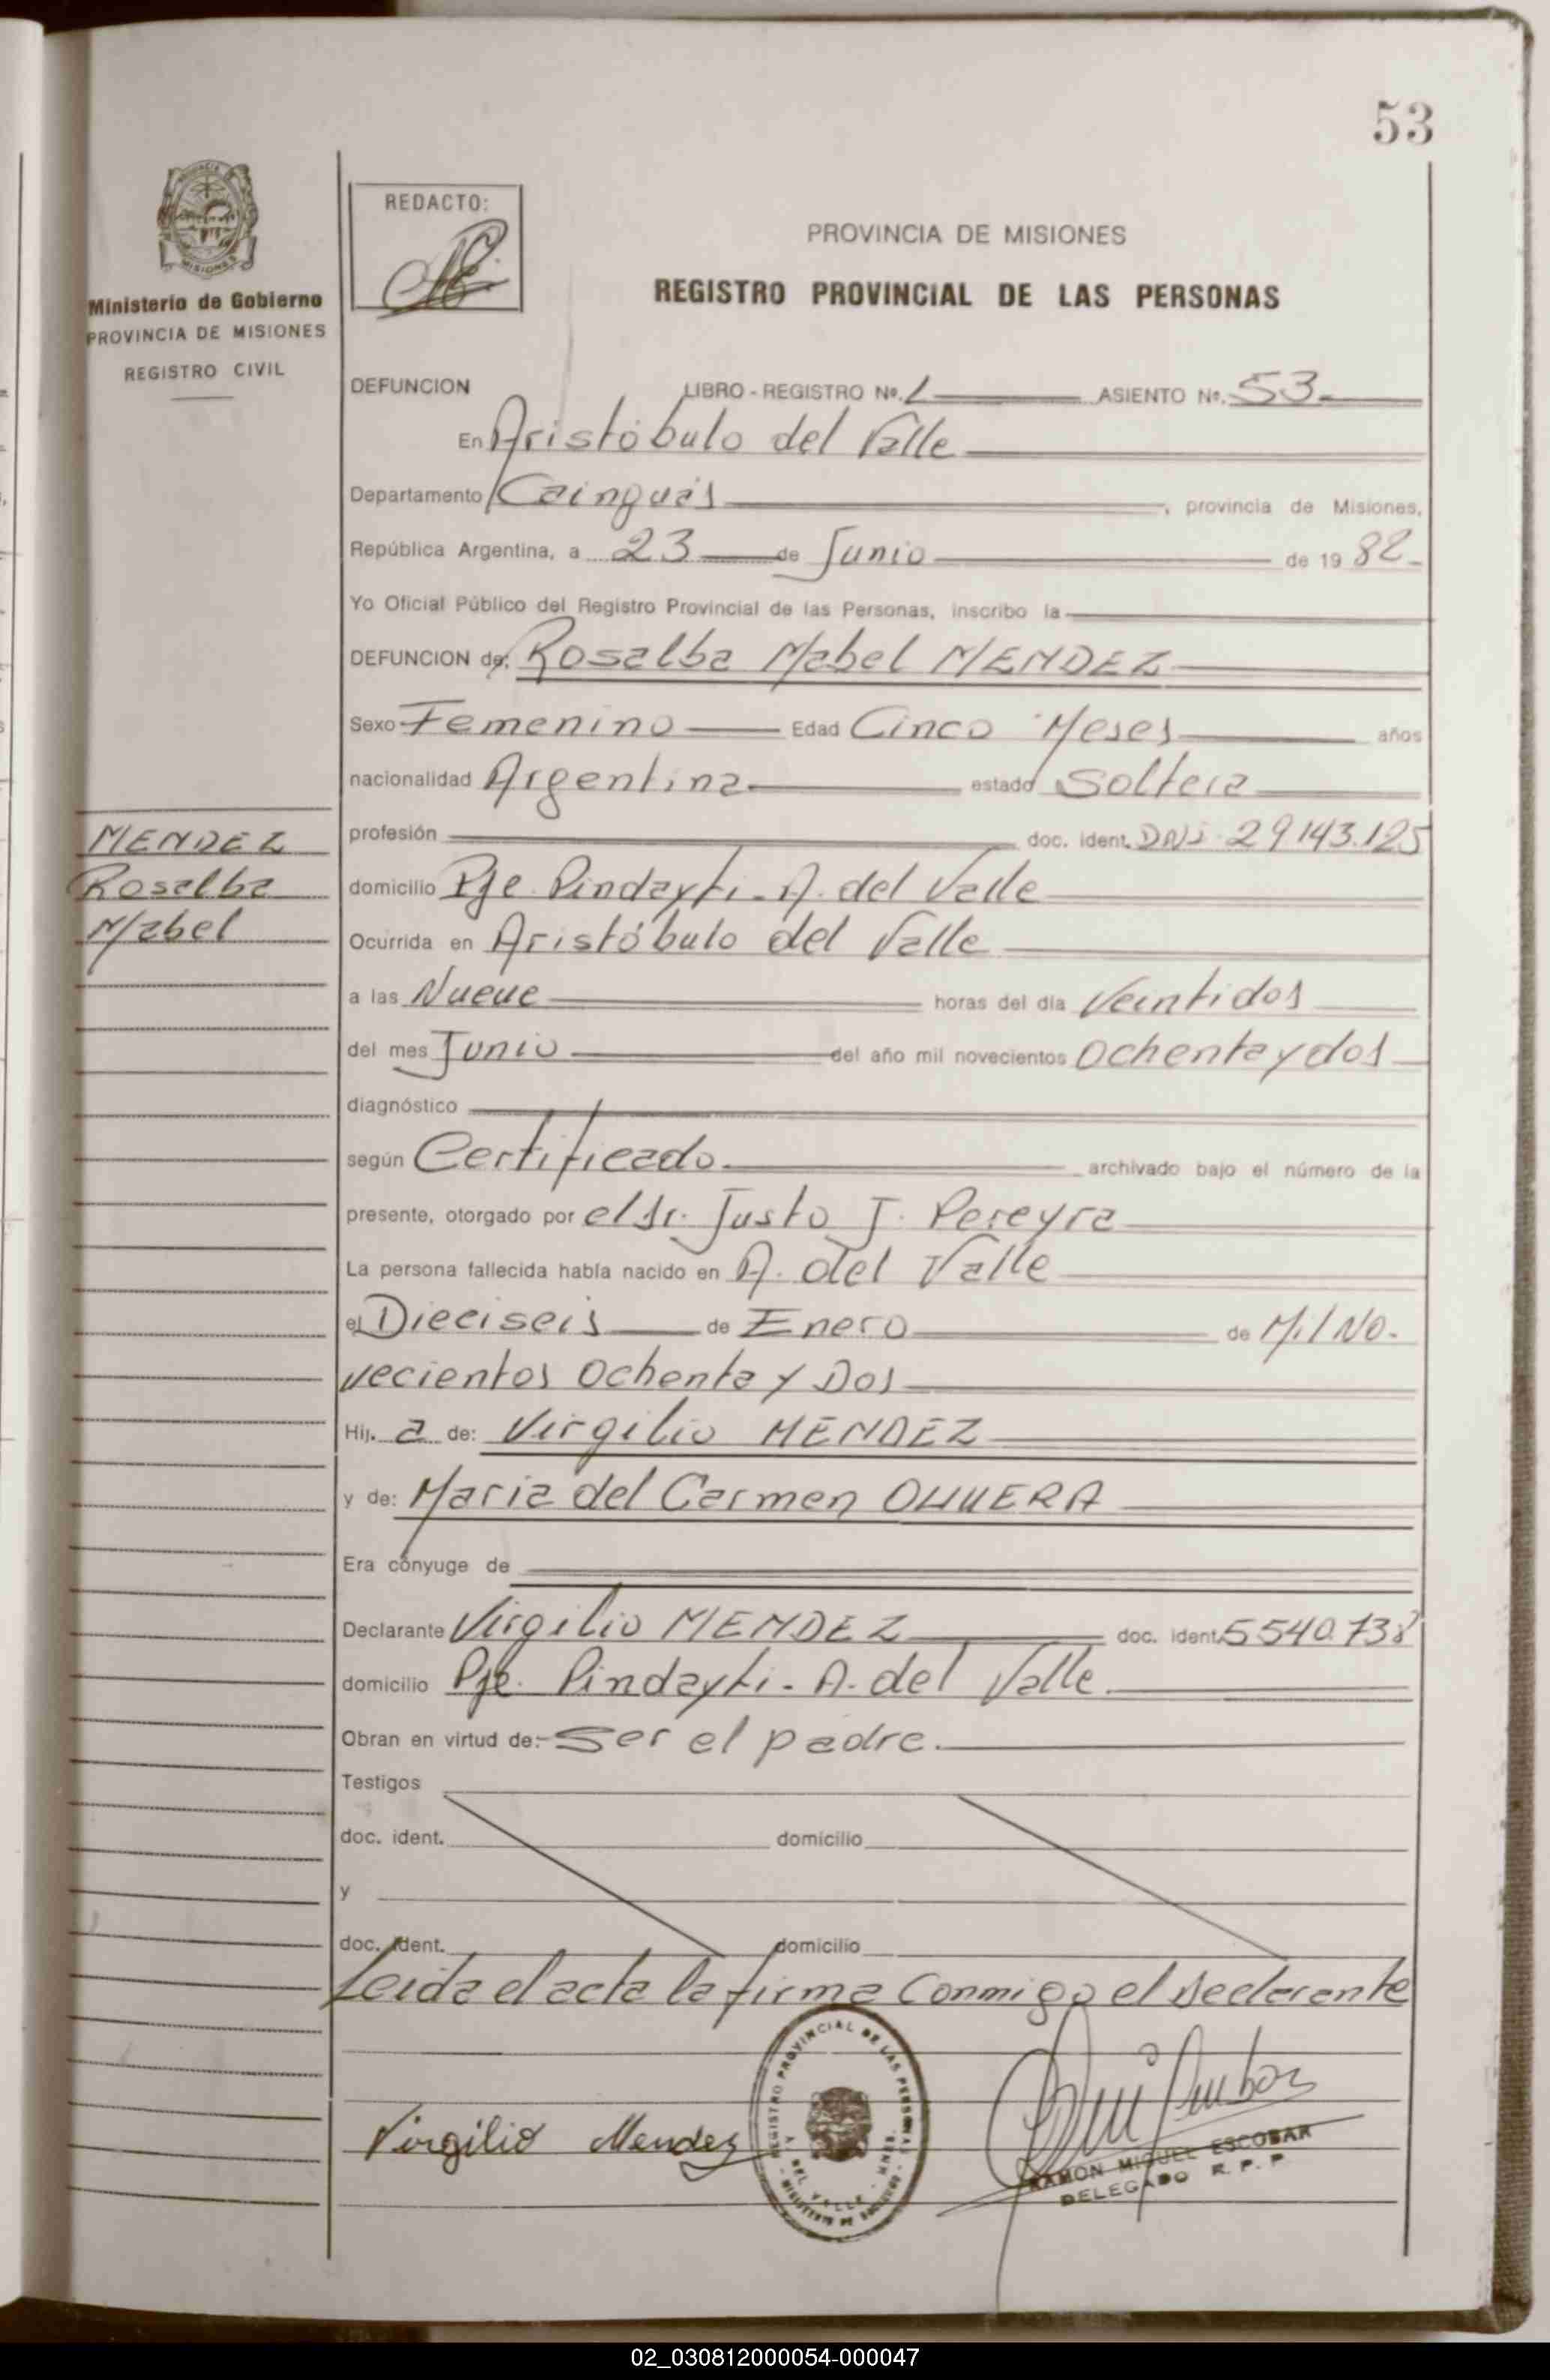 53
MISIONES
Ministerio de Gobierno
PROVINCIA DE MISIONES
REGISTRO CIVIL
REDACTO:
PROVINCIA DE MISIONES
REGISTRO PROVINCIAL DE LAS PERSONAS
DEFUNCION LIBRO - REGISTRO Nº. 1 ASIENTO Nº. 53
En Aristóbulo del Valle
Departamento Cainguás, provincia de Misiones,
República Argentina, a 23 de Junio de 19 82
Yo Oficial Público del Registro Provincial de las Personas, inscribo la
DEFUNCION de: Rosalba Mabel MENDEZ
Sexo Femenino Edad Cinco Meses años
nacionalidad Argentina estado Soltera
profesión doc. ident. DNI. 29143.125
MENDEZ
Rosalba
Mabel
domicilio Pje. Pindayti - A. del Valle
Ocurrida en Aristóbulo del Valle
a las Nueve horas del día Veintidos
del mes Junio del año mil novecientos Ochenta y dos
diagnóstico
según Certificado archivado bajo el número de la
presente, otorgado por el Dr. Justo J. Pereyra
La persona fallecida había nacido en A. del Valle
el Dieciseis de Enero de Mil No-
vecientos Ochenta y Dos
Hij. a de: Virgilio MENDEZ
y de: Maria del Carmen OLIVERA
Era cónyuge de
Declarante Virgilio MENDEZ doc. ident. 5540.738
domicilio Pje. Pindayti - A. del Valle.
Obran en virtud de:- Ser el padre.
Testigos
doc. ident. domicilio
y
doc. ident. domicilio
Leida el acta la firma Conmigo el declarante
Virgilio Mendez
REGISTRO PROVINCIAL DE LAS PERSONAS
DEL VALLE
RAMON MIGUEL ESCOBAR
DELEGADO R. P. P
02_030812000054-000047